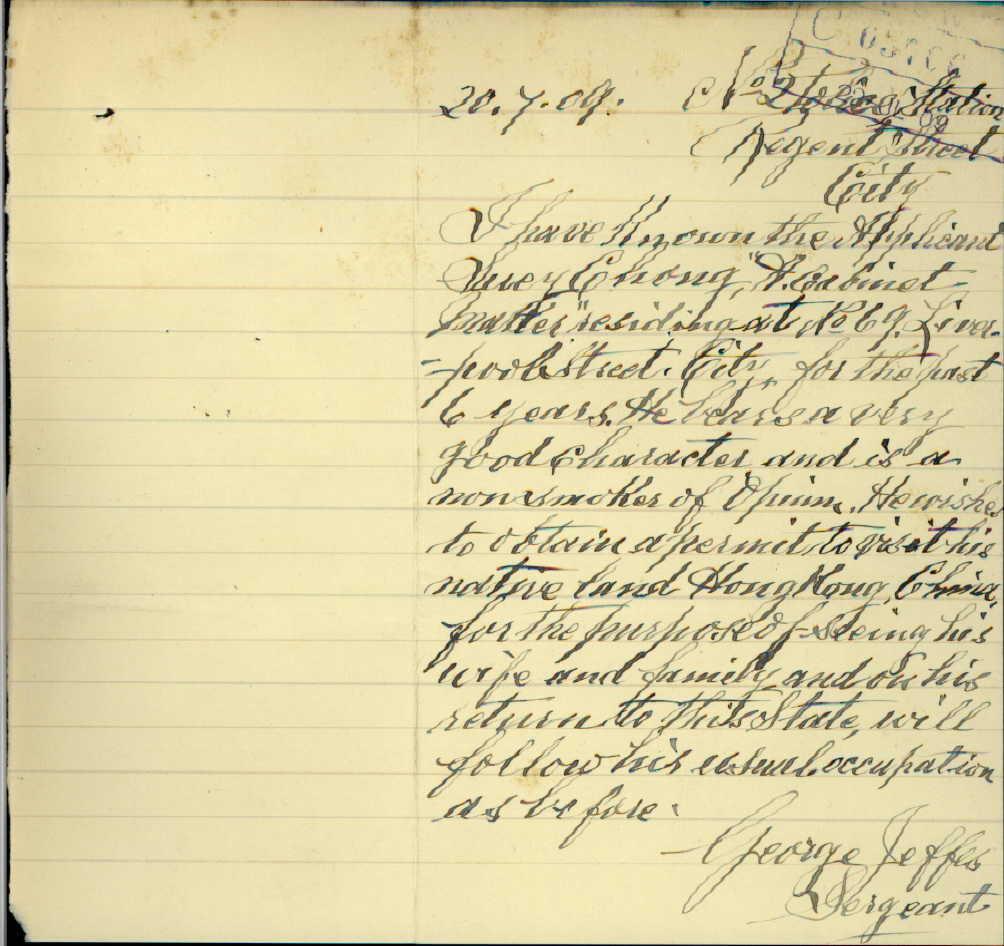 C 05706
20.7.09. No 2 Police Station
Regent Street
City
I have Known the Applicant
Suey Chong, "A. Cabinet
Maker" residing at No 69. Liver-
-pool Street. City, for the past
6 years. He bears a very
good character and is a
non smoker of Opium. He wishes
to obtain a permit to visit his
native land Hong Kong, China,
for the purpose of seeing his
wife and family and on his
return to this State, will
follow his usual occupation
as before.
George Jeffes
Sergeant